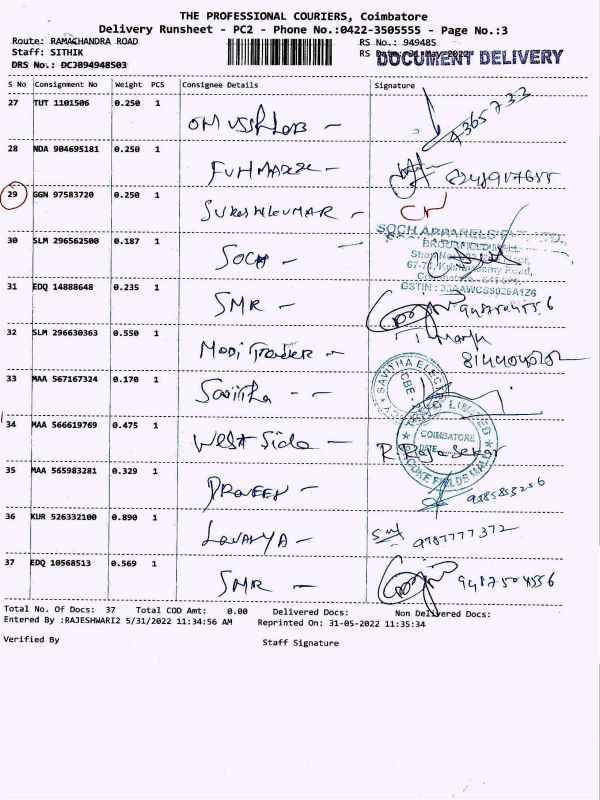 THE PROFESSIONAL COURIERS, Coimbatore
Delivery Runsheet - PC2 - Phone No.:0422-3505555 - Page No.:3
Route: RAMACHANDRA ROAD RS No.: 949485
Staff: SITHIK RS Date: 31-May-2022
DOCUMENT DELIVERY
DRS No.: DCJB94948503
S No Consignment No Weight PCS Consignee Details Signature
27 TUT 1101506 0.250 1
28 NDA 904695181 0.250 1
29 GGN 97583720 0.250 1 SUKESHKUMAR -
SOCH APPARELS
30 SLM 296562500 0.187 1 SOCH -
31 EDQ 14888648 0.235 1 SMR - 9487504556
32 SLM 296630363 0.550 1 Modi Trader -
33 MAA 567167324 0.170 1 Savitha - -
SAVITHA ELECT
34 MAA 566619769 0.475 1 West Side - R. Rajasekar
LIMITED
COIMBATORE
DATE
35 MAA 565983281 0.329 1 PRAVEEN -
36 KUR 526332100 0.890 1 LAVANYA - 9787777372
37 EDQ 10568513 0.569 1 SMR - 9487504556
Total No. Of Docs: 37 Total COD Amt: 0.00 Delivered Docs: Non Delivered Docs:
Entered By :RAJESHWARI2 5/31/2022 11:34:56 AM Reprinted On: 31-05-2022 11:35:34
Verified By Staff Signature